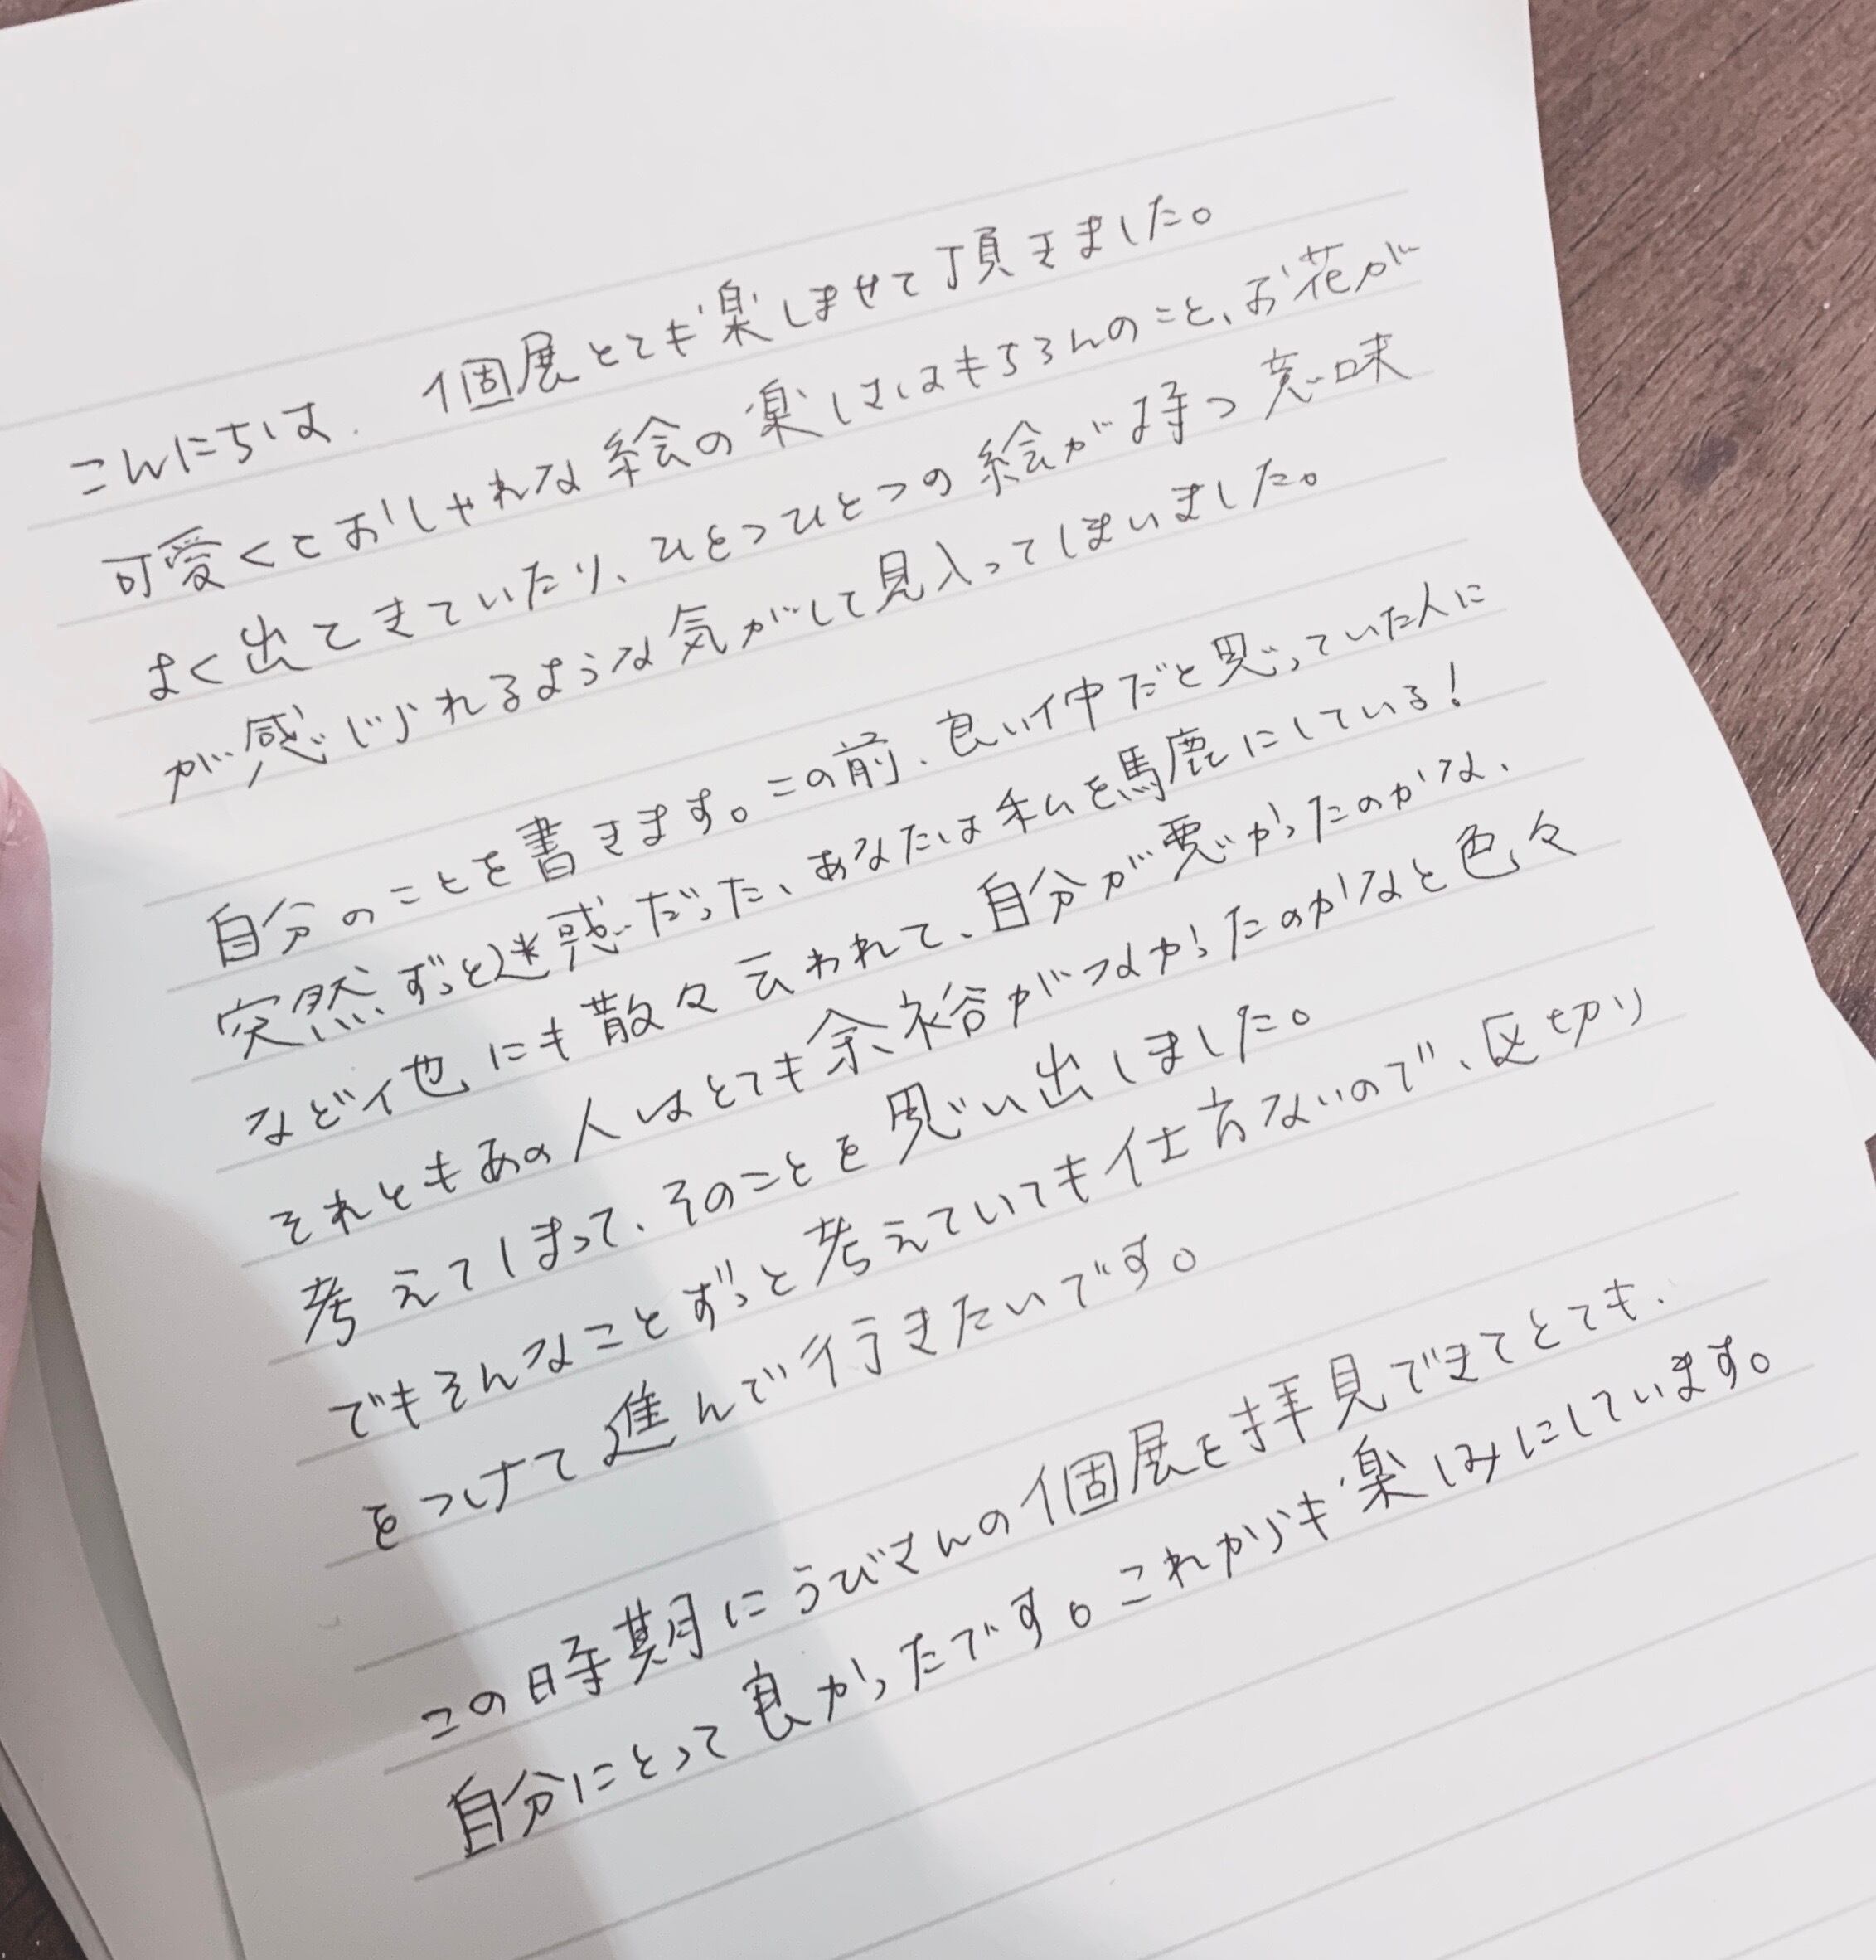 こんにちは、個展とても楽しませて頂きました。
可愛くておしゃれな絵の楽しさはもちろんのこと、お花が
よく出てきていたり、ひとつひとつの絵が持つ意味
が感じられるような気がして見入ってしまいました。
自分のことを書きます。この前、良い仲だと思っていた人に
突然ずっと迷惑だった、あなたは私を馬鹿にしている!
など他にも散々云われて、自分が悪かったのかな、
それともあの人はとても余裕がなかったのかなと色々
考えてしまって、そのことを思い出しました。
でもそんなことずっと考えていても仕方ないので、区切り
をつけて進んで行きたいです。
この時期にうびさんの個展を拝見できてとても、
自分にとって良かったです。これからも楽しみにしています。